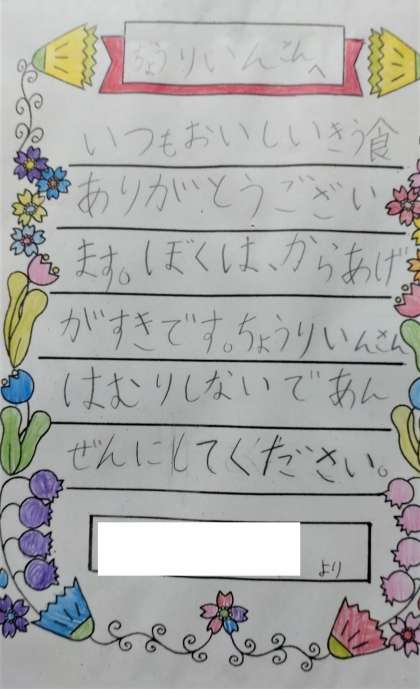 ちょうりいんさんへ
いつもおいしいきう食
ありがとうござい
ます。ぼくは、からあげ
がすきです。ちょうりいんさん
はむりしないであん
ぜんにしてください。
より